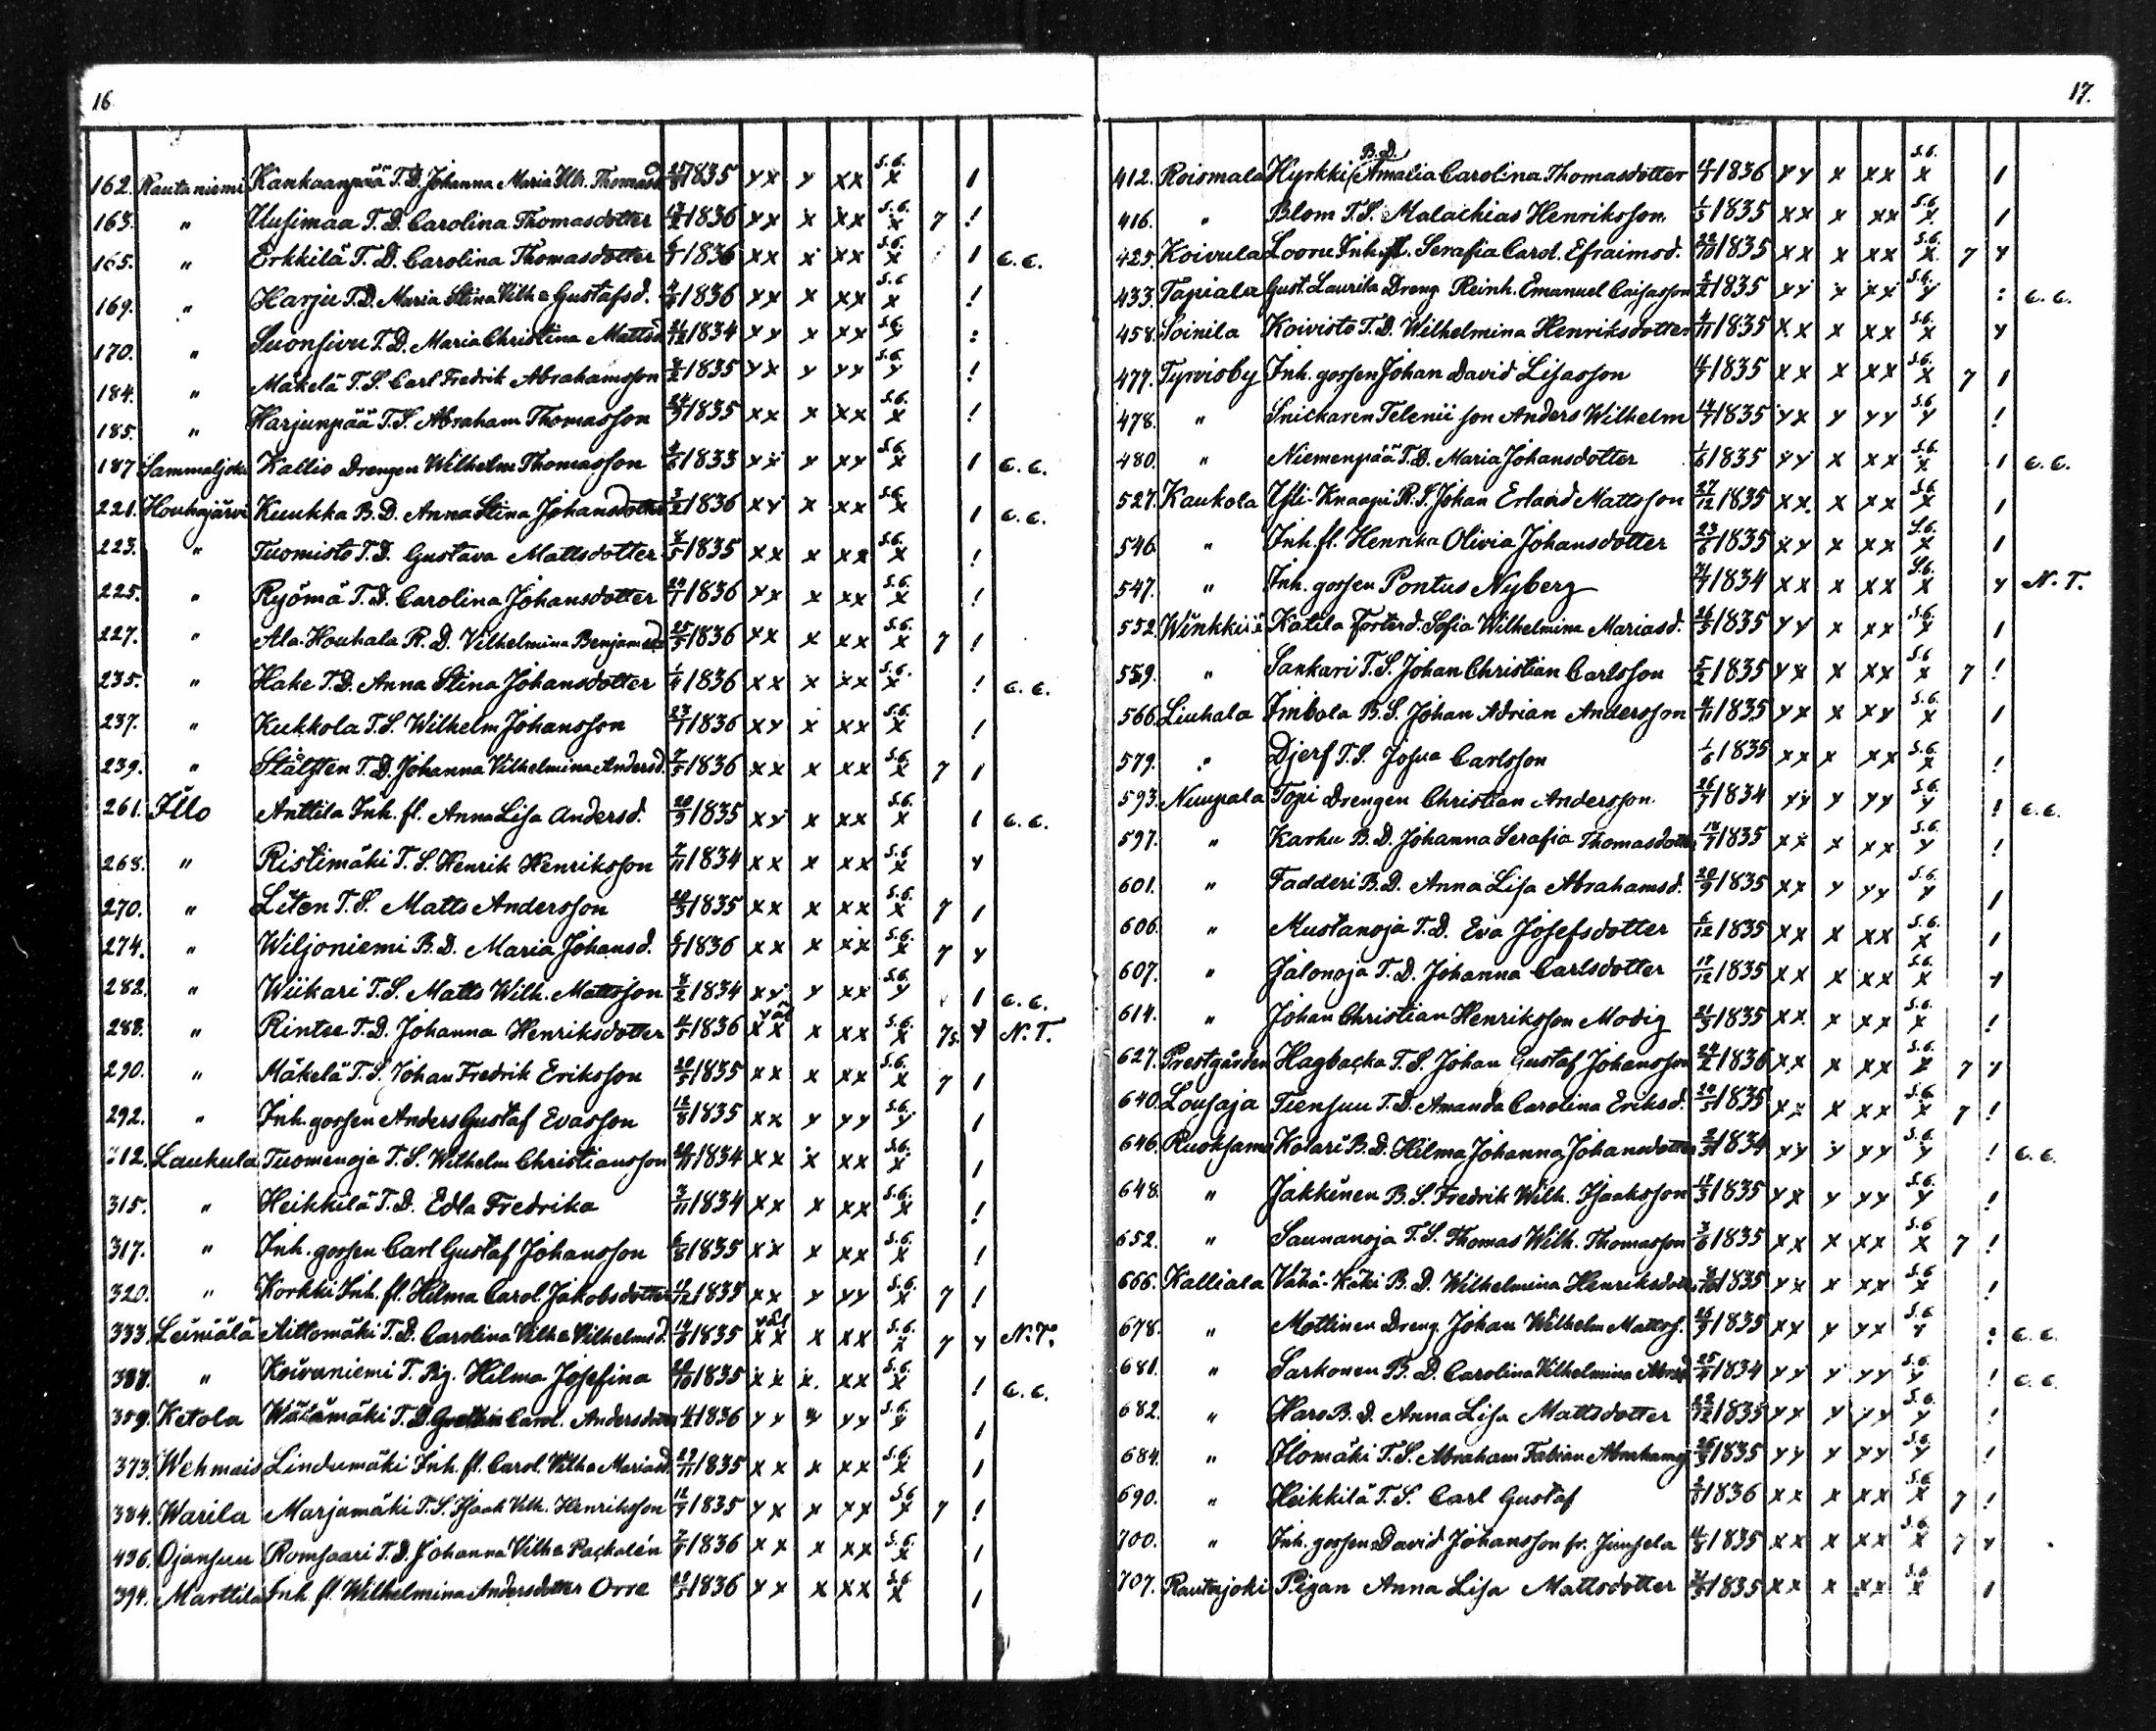 16
162. Rautaniemi Kankaanpää T.D. Johanna Maria Thomasd. 1835 xx x xx S.G. x 1
163. " Uusimaa T.D. Carolina Thomasdotter 1836 xx x xx S.G. x 7 !
165. " Erkkilä T.D. Carolina Thomasdotter 1836 xx x xx S.G. x 1 C.C.
169. " Harju T.D. Maria Stina Vilh:a Gustafsd. 1836 xx x xx S.G. x !
170. " Suonsivu T.D. Maria Christina Mattsd. 21/12 1834 xx x xx S.G. x :
184. " Mäkelä T.S. Carl Fredrik Abrahamsson 1835 xx x xx S.G. x !
185. " Harjunpää T.S. Abraham Thomasson 1835 xx x xx S.G. x !
187 Sammaljoki Kallio Drengen Wilhelm Thomasson 1833 xx x xx S.G. x 1 C.C.
221. Houhajärvi Kuukka B.D. Anna Stina Johansdotter 3/2 1836 xx x xx S.G. x 1 C.C.
223. " Tuomisto T.D. Gustava Mattsdotter 1835 xx x xx S.G. x !
225. " Ryömä T.D. Carolina Johansdotter 1836 xx x xx S.G. x !
227. " Ala-Houhala R.D. Vilhelmina Benjamsd. 25/3 1836 xx x xx S.G. x 7 !
235. " Hake T.D. Anna Stina Johansdotter 1/4 1836 xx x xx S.G. x ! C.C.
237. " Kukkola T.S. Wilhelm Johansson 23/1 1836 xx x xx S.G. x !
239. " Stålsten T.D. Johanna Vilhelmina Andersd. 1836 xx x xx S.G. x 7 1
261. Illo Anttila Inh. fl. Anna Lisa Andersd. 1835 xx x xx S.G. x 1 C.C.
268. " Ristimäki T.S. Henrik Henriksson 7/11 1834 xx x xx S.G. x x
270. " Liten T.S. Matts Andersson 1835 xx x xx S.G. x 7 1
274. " Wiljoniemi B.D. Maria Johansd. 1836 xx x xx S.G. x 7 x
282. " Wiikari T.S. Matts Wilh. Mattsson 1834 xx x xx S.G. x 1 C.C.
288. " Rintee T.D. Johanna Henriksdotter 1836 väl xx x xx S.G. x 7s. x N.T.
290. " Mäkelä T.S. Johan Fredrik Eriksson 1835 xx x xx S.G. x 7 1
292. " Inh. gossen Anders Gustaf Evasson 12/8 1835 xx x xx S.G. x 1
312. Laukula Tuomenoja T.S. Wilhelm Christiansson 1834 xx x xx S.G. x 1
315. " Heikkilä T.D. Edla Fredrika 3/11 1834 xx x xx S.G. x !
317. " Inh. gossen Carl Gustaf Johansson 6/8 1835 xx x xx S.G. x !
320. " Korkki Inh. fl. Hilma Carol. Jakobsdotter 1835 xx x xx S.G. x 7 !
333. Leiniälä Aittomäki T.D. Carolina Vilh:a Vilhelmsd. 1835 väl xx x xx S.G. x 7 x N.T.
" Koivuniemi T. Pig. Hilma Josefina 1835 xx x. xx S.G. x ! C.C.
359. Ketola T.D. Carol. Andersdotter 1836 xx x xx S.G. x 1
373. Wehmais Lindumäki Inh. fl. Carol. Vilh:a Mariasd. 1835 xx x xx S.G. x 1
384. Warila Marjamäki T.S. Isaak Vilh. Henriksson 1835 xx x xx S.G. x 7 !
436. Ojansuu Romsaari T.D. Johanna Vilh:a Packalén 1836 xx x xx S.G. x 1
394. Marttila Inh. fl. Wilhelmina Andersdotter Orre 1836 xx x xx S.G. x 1
17.
412. Roismala Hyrkki B.D. Amalia Carolina Thomasdotter 1836 xx x xx S.G. x 1
416. " Blom T.S. Malachias Henriksson 1/3 1835 xx x xx S.G. x 1
425. Koivula Looru Inh. fl. Serafia Carol. Efraimsd. 22/10 1835 xx x xx S.G. x. 7 x
433. Tapiala Gust. Laurila Dreng Reinh. Emanuel Caisasson 1835 xx x xx S.G. x : C.C.
458. Soinila Koivisto T.D. Wilhelmina Henriksdotter 1835 xx x xx S.G. x x
477. Tyrvisby Inh. gossen Johan David Lisasson 1835 xx x xx S.G. x 7 1
478. " Snickaren Telenii son Anders Wilhelm 1835 xx x xx S.G. x !
480. " Niemenpää T.D. Maria Johansdotter 1/6 1835 xx x xx S.G. x 1 C.C.
527. Kaukola Ylli-Knaapi R.S. Johan Erland Mattsson 27/12 1835 xx. x xx S.G. x 1
546. " Inh. fl. Henrika Olivia Johansdotter 23/6 1835 xx x xx S.G. x 1
547. " Inh. gossen Pontus Nyberg 1834 xx x xx S.G. x x N.T.
552. Winkkilä Katila Fosterd. Sofia Wilhelmina Mariasd. 1835 xx x xx S.G. x 1
559. " Sankari T.S. Johan Christian Carlsson 5/2 1835 xx x xx S.G. x 7 !
566. Liuhala Imbola B.S. Johan Adrian Andersson 1835 xx x xx S.G. x 1
579. " Djerf T.S. Josua Carlsson 1/6 1835 xx x xx S.G. x !
593. Nuupala Topi Drengen Christian Andersson 26/7 1834 xx x xx S.G. x ! C.C.
597. " Karhu B.D. Johanna Serafia Thomasdotter 1835 xx x xx S.G. x !
601. " Fadderi B.D. Anna Lisa Abrahamsd. 20/9 1835 xx x xx S.G. x 1
606. " Mustanoja T.D. Eva Josefsdotter 6/12 1835 xx x xx S.G. x 1
607. " Jalonoja T.D. Johanna Carlsdotter 1835 xx x xx S.G. x x
614. " Johan Christian Henriksson Modig 1835 xx x xx S.G. x !
627. Prestgården Hagbacka T.S. Johan Gustaf Johansson 24/2 1836 xx x xx S.G. x 7 x
640. Lousaja Tiensuu T.D. Amanda Carolina Eriksd. 1835 xx x xx S.G. x 7 !
646. Ruoksamo Kolari B.D. Hilma Johanna Johansdotter 1834 xx x xx S.G. x ! C.C.
648. " Jakkinen B.S. Fredrik Wilh. Isaaksson 1835 xx x xx S.G. x !
652. " Saunanoja T.S. Thomas Wilh. Thomasson 1835 xx x xx S.G. x 7 !
666. Kalliala Vähä-Käki B.D. Wilhelmina Henriksdotter 1835 xx x xx S.G. x !
678. " Mottinen Dreng. Johan Wilhelm Mattss. 1835 xx x xx S.G. x : C.C.
681. " Sarkonen B.D. Carolina Vilhelmina 1834 xx x xx S.G. x ! C.C.
682. " Haro B.D. Anna Lisa Mattsdotter 1835 xx x xx S.G. x !
684. " Ilomäki T.S. Abraham Fabian Abrahamss. 1835 xx x xx S.G. x !
690. " Heikkilä T.S. Carl Gustaf 1836 xx x xx S.G. x 7 !
700. " Inh. gossen David Johansson fr. Jimsela 1835 xx x xx S.G. x 7 x
707. Rautajoki Pigan Anna Lisa Mattsdotter 1835 xx x xx S.G. x 1